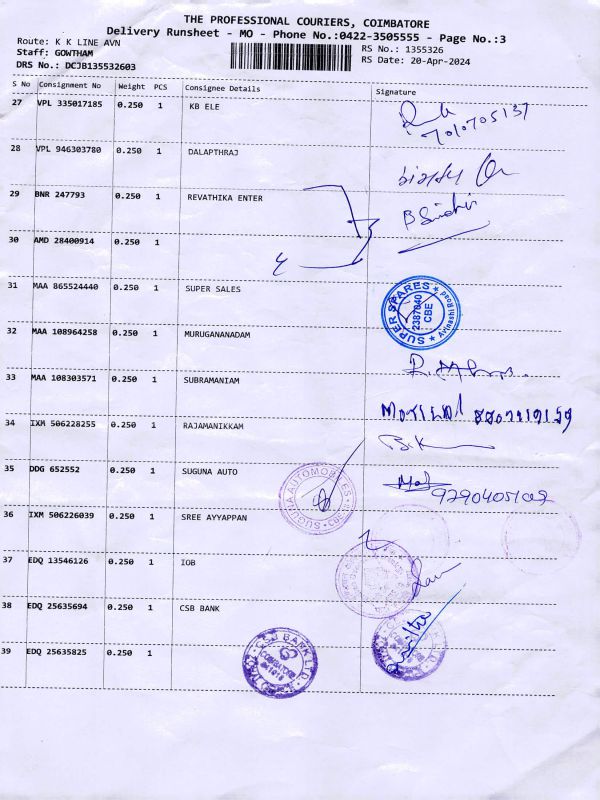 THE PROFESSIONAL COURIERS, COIMBATORE
Delivery Runsheet - MO - Phone No.:0422-3505555 - Page No.:3
Route: K K LINE AVN
RS No.: 1355326
Staff: GOWTHAM
RS Date: 20-Apr-2024
DRS No.: DCJB135532603
S No Consignment No Weight PCS Consignee Details Signature
27 VPL 335017185 0.250 1 KB ELE
7010705137
28 VPL 946303780 0.250 1 DALAPTHRAJ
29 BNR 247793 0.250 1 REVATHIKA ENTER
30 AMD 28400914 0.250 1
31 MAA 865524440 0.250 1 SUPER SALES
SUPER SPARES
2387040
CBE
Avinashi Road
32 MAA 108964258 0.250 1 MURUGANANADAM
33 MAA 108303571 0.250 1 SUBRAMANIAM
34 IXM 506228255 0.250 1 RAJAMANIKKAM
35 DDG 652552 0.250 1 SUGUNA AUTO
SUGUNA AUTOMOBILES
36 IXM 506226039 0.250 1 SREE AYYAPPAN
37 EDQ 13546126 0.250 1 IOB
38 EDQ 25635694 0.250 1 CSB BANK
39 EDQ 25635825 0.250 1
BANK LTD
COIMBATORE